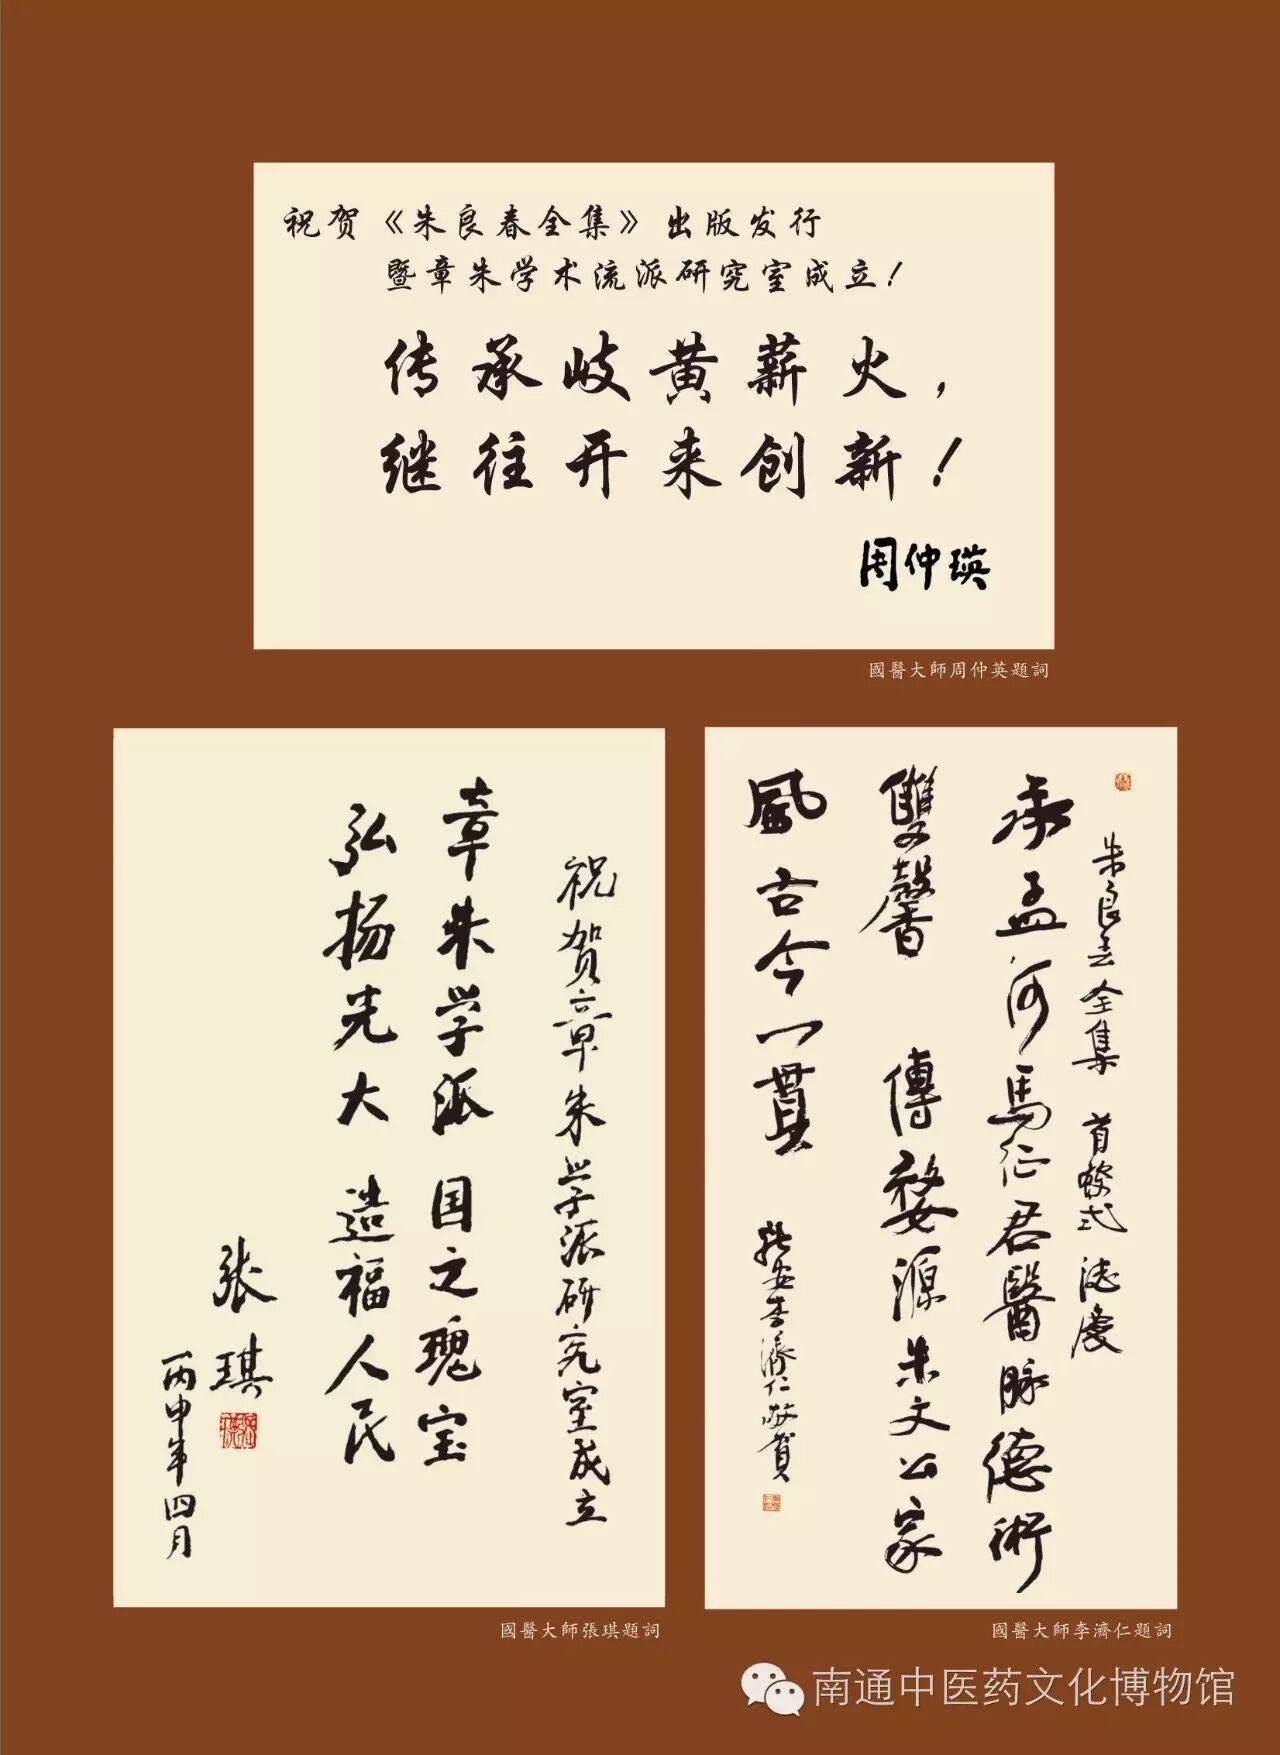 祝贺《朱良春全集》出版发行
暨章朱学术流派研究室成立！
传承岐黄薪火，
继往开来创新！
周仲瑛
國醫大師周仲英題詞
祝贺章朱学派研究室成立
章朱学派 国之瑰宝
弘扬光大 造福人民
张琪
丙申年四月
國醫大師張琪題詞
朱良春全集 首發式 誌慶
承孟河馬伯君醫脉德術
雙馨 傳婺源朱文公家
風古今一貫
李濟仁敬賀
國醫大師李濟仁題詞
南通中医药文化博物馆